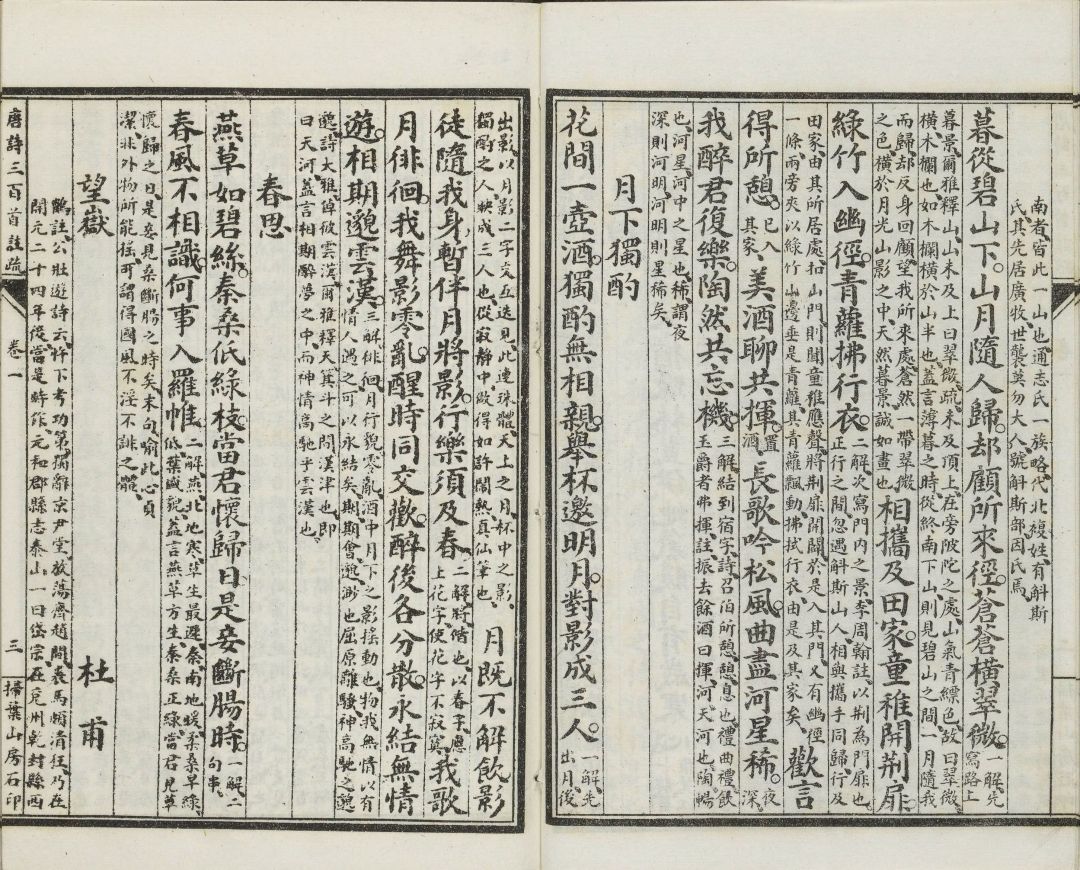 南者皆此一山也通志氏一族略代北複姓有斛斯
氏其先居廣牧世襲莫勿大人號斛斯部因氏焉
暮從碧山下。山月隨人歸。却顧所來徑。蒼蒼橫翠微。一解先
寫路上
暮景爾雅釋山山未及上曰翠微疏未及頂上在旁陂陀之處山氣青縹色故曰翠微
橫木欄也如木欄橫於山半也蓋言薄暮之時從終南下山則見碧山之間一月隨我
而歸却反身回顧望我所來處蒼然一帶翠微
之色橫於月光山影之中天然暮景誠如畫也
相攜及田家。童稚開荆扉
綠竹入幽徑。青蘿拂行衣。二解次寫門内之景李周翰註以荆為門扉也
正行之間忽遇斛斯山人相與攜手同歸行及
田家由其所居處扣山門則聞童稚應聲將荆扉開關於是入其門又有幽徑
一條兩旁夾以綠竹山邊垂是青蘿其青蘿飄動拂拭行衣由是及其家矣
歡言
得所憩。已入
其家
美酒聊共揮。置
酒
長歌吟松風。曲盡河星稀。夜
深
我醉君復樂。陶然共忘機。三解結到宿字詩召泊所憩憩息也禮曲禮飲
玉爵者弗揮註振去餘酒曰揮河天河也陶暢
也河星河中之星也稀謂夜
深則河明河明則星稀矣
月下獨酌
花間一壺酒。獨酌無相親。舉杯邀明月。對影成三人。一解先
出月後
出影以月影二字交互迭見此連珠體天上之月杯中之影
獨酌之人映成三人也從寂靜中做得如許鬧熱真仙筆也
月既不解飲影
徒隨我身。暫伴月將影。行樂須及春。二解將偕也以春字應
上花字使花字不寂寞
我歌
月徘徊。我舞影零亂。醒時同交歡。醉後各分散。永結無情
遊。相期邈雲漢。三解徘徊月行貌零亂酒中月下之影搖動也物我無情以有
情人遇之可以永結矣期期會邈渺也屈原離騷神高馳之邈
邈詩大雅倬彼雲漢爾雅釋天箕斗之間漢津也即
曰天河蓋言相期醉夢之中而神情高馳乎雲漢也
春思
燕草如碧絲。秦桑低綠枝。當君懷歸日。是妾斷腸時。一解二
句事
春風不相識。何事入羅幃。二解燕北地寒草生最遲秦南地暖柔桑早綠
低葉盛貌蓋言燕草方生秦桑正綠當君見草
懷歸之日是妾見桑斷腸之時矣末句喻此心貞
潔非外物所能搖可謂得國風不淫不誹之體
望嶽 杜甫
鶴註公壯遊詩云忤下考功第獨辭京尹堂放蕩齊趙間裘馬頗清狂乃在
開元二十四年後當是時作元和郡縣志泰山一曰岱宗在兗州乾封縣西
唐詩三百首註疏 卷一 三 掃葉山房石印